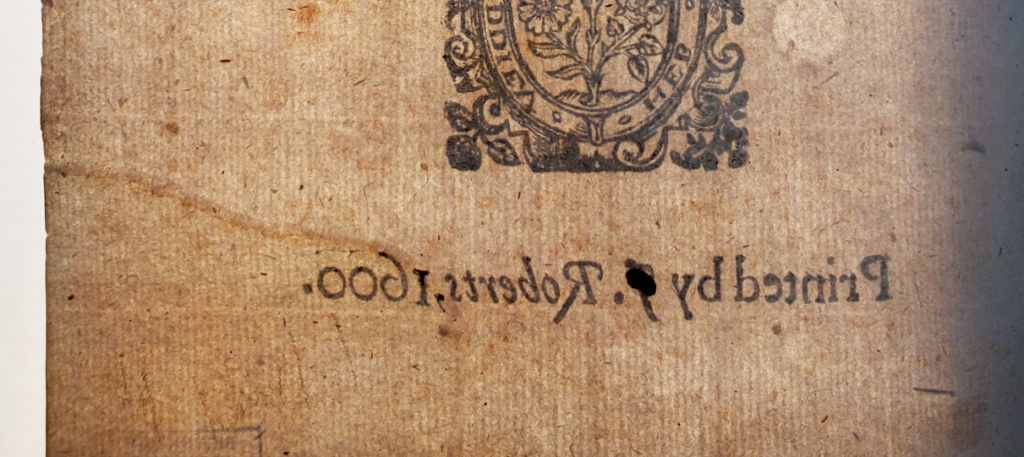 Printed by J. Roberts, 1600.